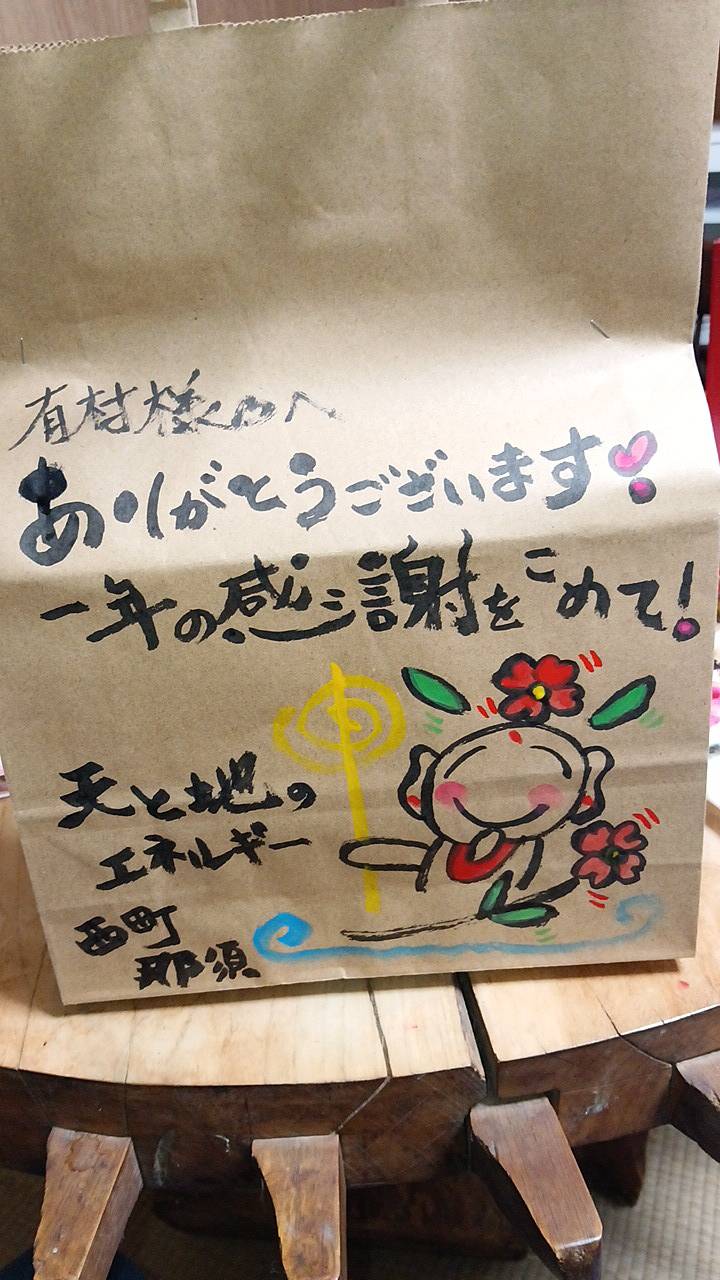 有村様へ
ありがとうございます
一年の感謝をこめて!
天と地の
エネルギー
西町
那須